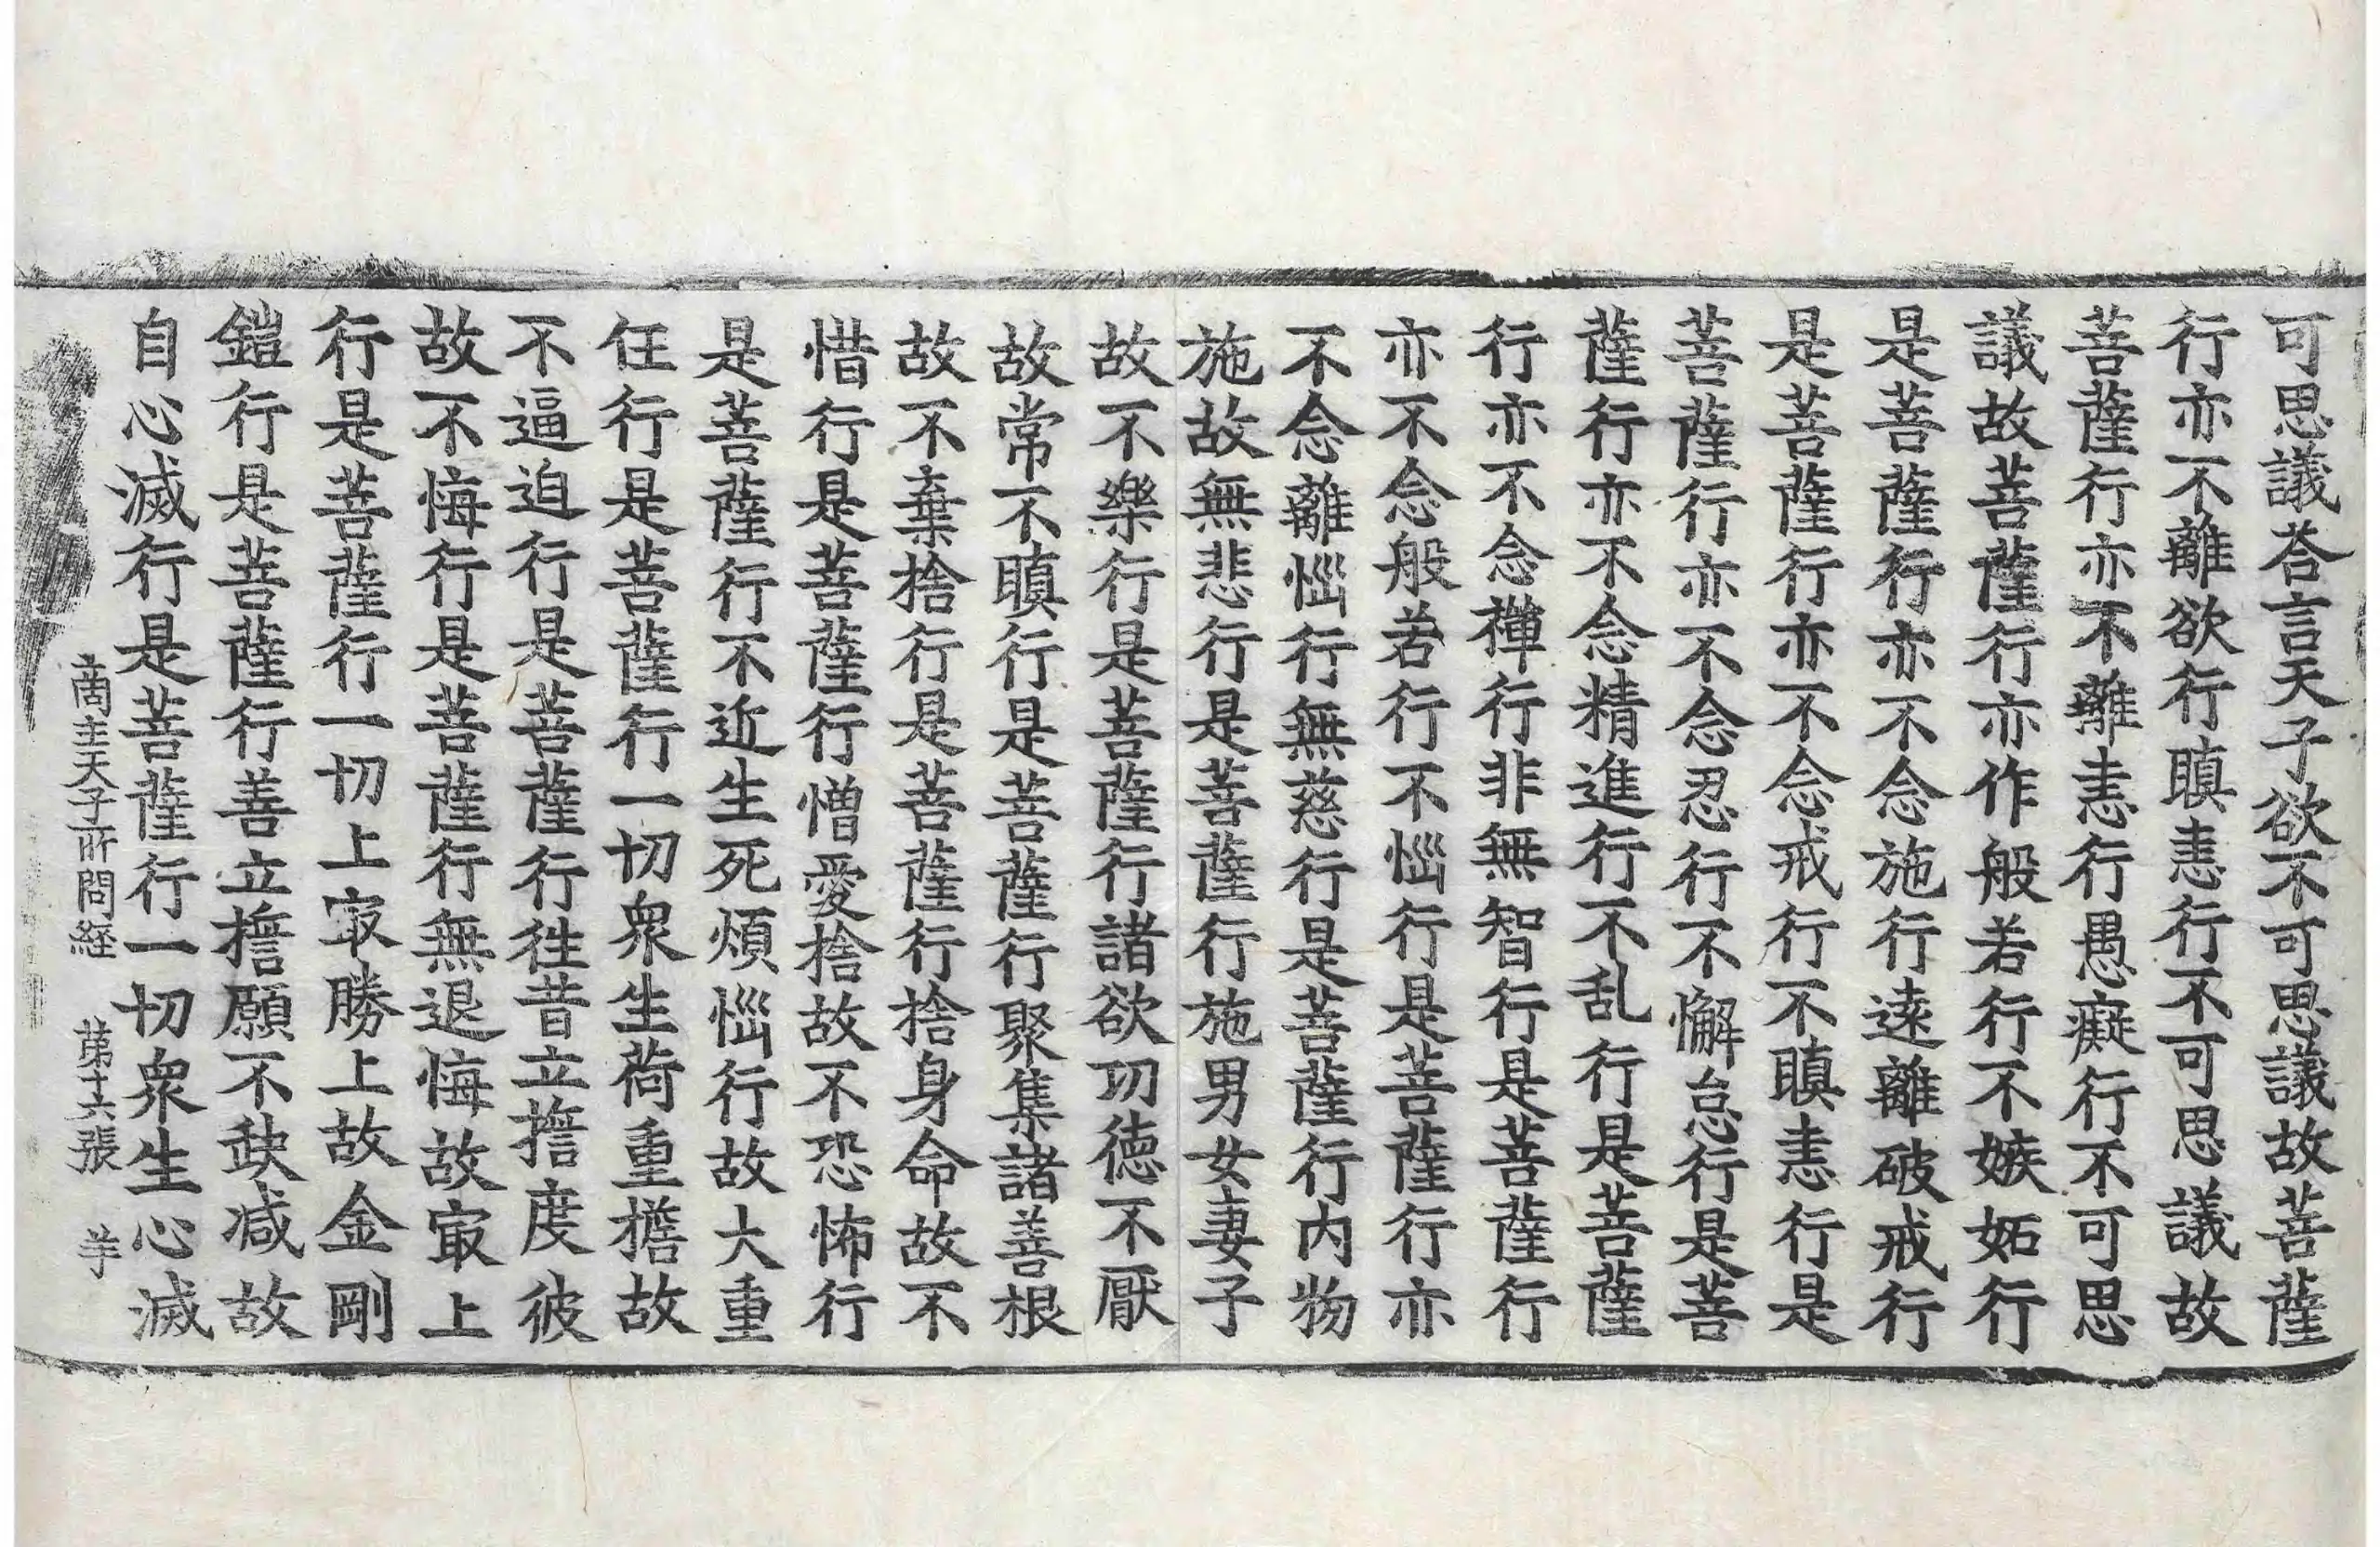 可思議荅言天子欲不可思議故菩薩
行亦不離欲行瞋恚行不可思議故
菩薩行亦不離恚行愚癡行不可思
議故菩薩行亦作般若行不嫉妬行
是菩薩行亦不念施行遠離破戒行
是菩薩行亦不念戒行不瞋恚行是
菩薩行亦不念忍行不懈怠行是菩
薩行亦不念精進行不乱行是菩薩
行亦不念禪行非無智行是菩薩行
亦不念般若行不惱行是菩薩行亦
不念離惱行無慈行是菩薩行内物
施故無悲行是菩薩行施男女妻子
故不樂行是菩薩行諸欲功德不厭
故常不瞋行是菩薩行聚集諸善根
故不棄捨行是菩薩行捨身命故不
惜行是菩薩行憎愛捨故不恐怖行
是菩薩行不近生死煩惱行故大重
任行是菩薩行一切衆生荷重擔故
不逼迫行是菩薩行徃昔立擔度彼
故不悔行是菩薩行無退悔故㝡上
行是菩薩行一切上㝡勝上故金剛
鎧行是菩薩行善立擔願不缺減故
自心滅行是菩薩行一切衆生心滅
商主天子所問経 苐十六張 羊